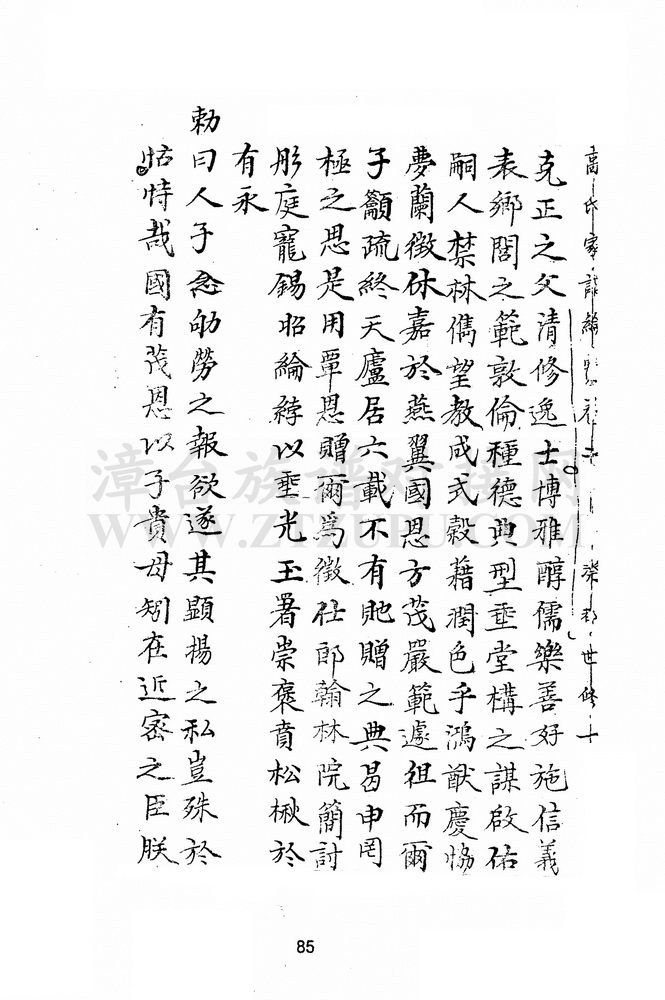 高氏家譜
克正之父清修逸士博雅醇儒樂善好施信義
表鄉閭之範敦倫種德典型垂堂構之謀啟佑
嗣人禁林儁望教成式穀藉潤色乎鴻猷慶協
夢蘭徵休嘉於燕翼國恩方茂嚴範遽徂而爾
子籲疏終天廬居六載不有貤贈之典曷申罔
極之思是用覃恩贈爾為徵仕郎翰林院簡討
彤庭寵錫昭綸綍以垂光玉署崇褒賁松楸於
有永
勅曰人子念劬勞之報欲遂其顯揚之私豈殊於
怙恃哉國有茂恩以子貴母矧在近密之臣朕
漳台族谱对接网
WWW.ZTZUPU.COM
85